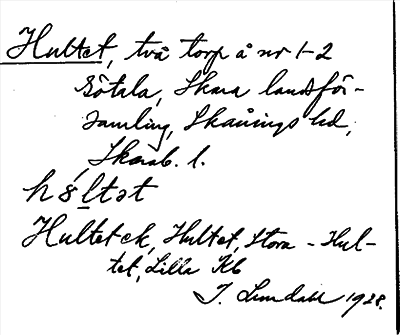 Hultet, två torp å nr 1-2
Götala, Skara landsför-
samling, Skånings hd,
Skarab. l.
húltət
Hultet ek, Hultet, Stora - Hul-
tet, Lilla Kb
J. Lundahl 1928.